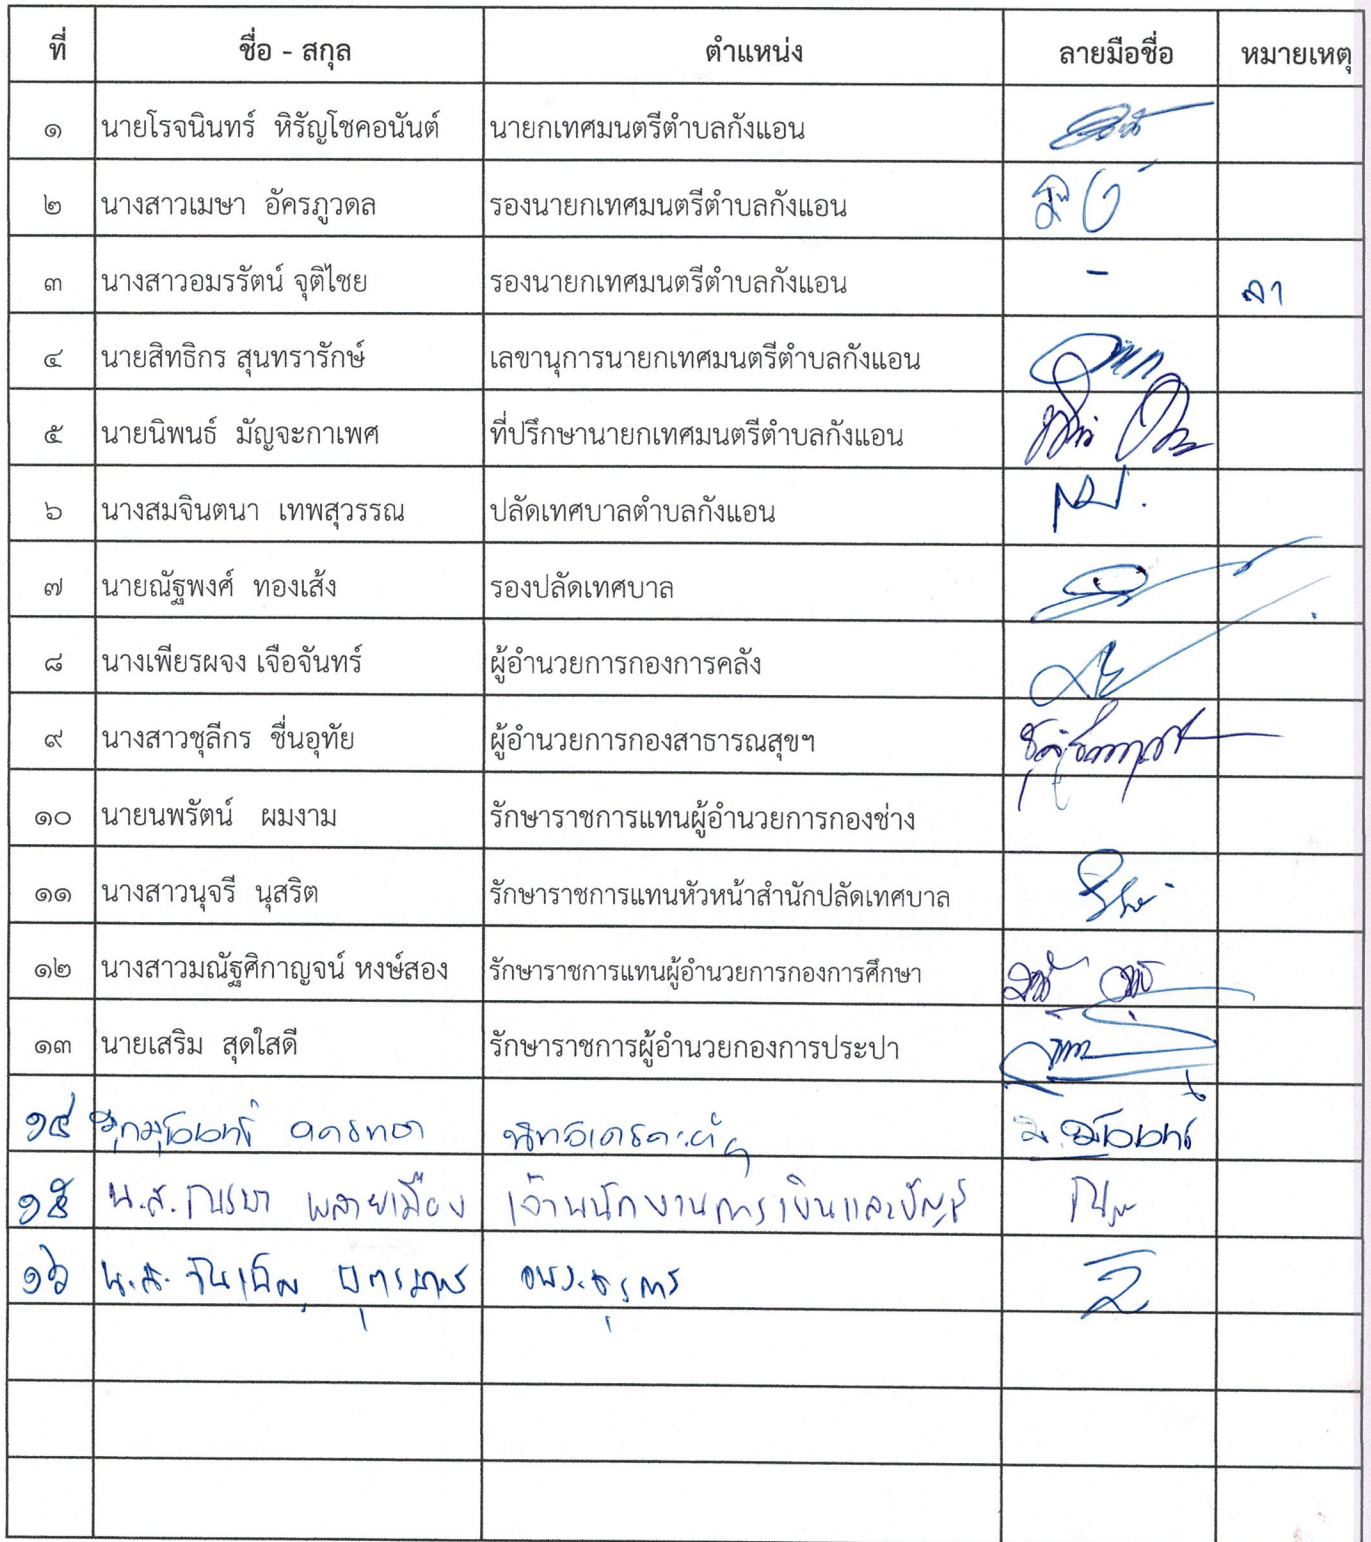 ที่ ชื่อ - สกุล ตำแหน่ง ลายมือชื่อ หมายเหตุ
๑ นายโรจนินทร์ หิรัญโชคอนันต์ นายกเทศมนตรีตำบลกังแอน
๒ นางสาวเมษา อัครภูวดล รองนายกเทศมนตรีตำบลกังแอน
๓ นางสาวอมรรัตน์ จุติไชย รองนายกเทศมนตรีตำบลกังแอน - ลา
๔ นายสิทธิกร สุนทรารักษ์ เลขานุการนายกเทศมนตรีตำบลกังแอน
๕ นายนิพนธ์ มัญจะกาเพศ ที่ปรึกษานายกเทศมนตรีตำบลกังแอน
๖ นางสมจินตนา เทพสุวรรณ ปลัดเทศบาลตำบลกังแอน
๗ นายณัฐพงศ์ ทองเส้ง รองปลัดเทศบาล
๘ นางเพียรผจง เจือจันทร์ ผู้อำนวยการกองการคลัง
๙ นางสาวชุลีกร ชื่นอุทัย ผู้อำนวยการกองสาธารณสุขฯ
๑๐ นายนพรัตน์ ผมงาม รักษาราชการแทนผู้อำนวยการกองช่าง
๑๑ นางสาวนุจรี นุสริต รักษาราชการแทนหัวหน้าสำนักปลัดเทศบาล
๑๒ นางสาวมณัฐศิกาญจน์ หงษ์สอง รักษาราชการแทนผู้อำนวยการกองการศึกษา
๑๓ นายเสริม สุดใสดี รักษาราชการผู้อำนวยกองการประปา
๑๔
๑๕ น.ส. พลายเมือง เจ้าพนักงานการเงินและบัญชี
๑๖ น.ส. จันเพ็ญ บุตรมาศ จพง.ธุรการ